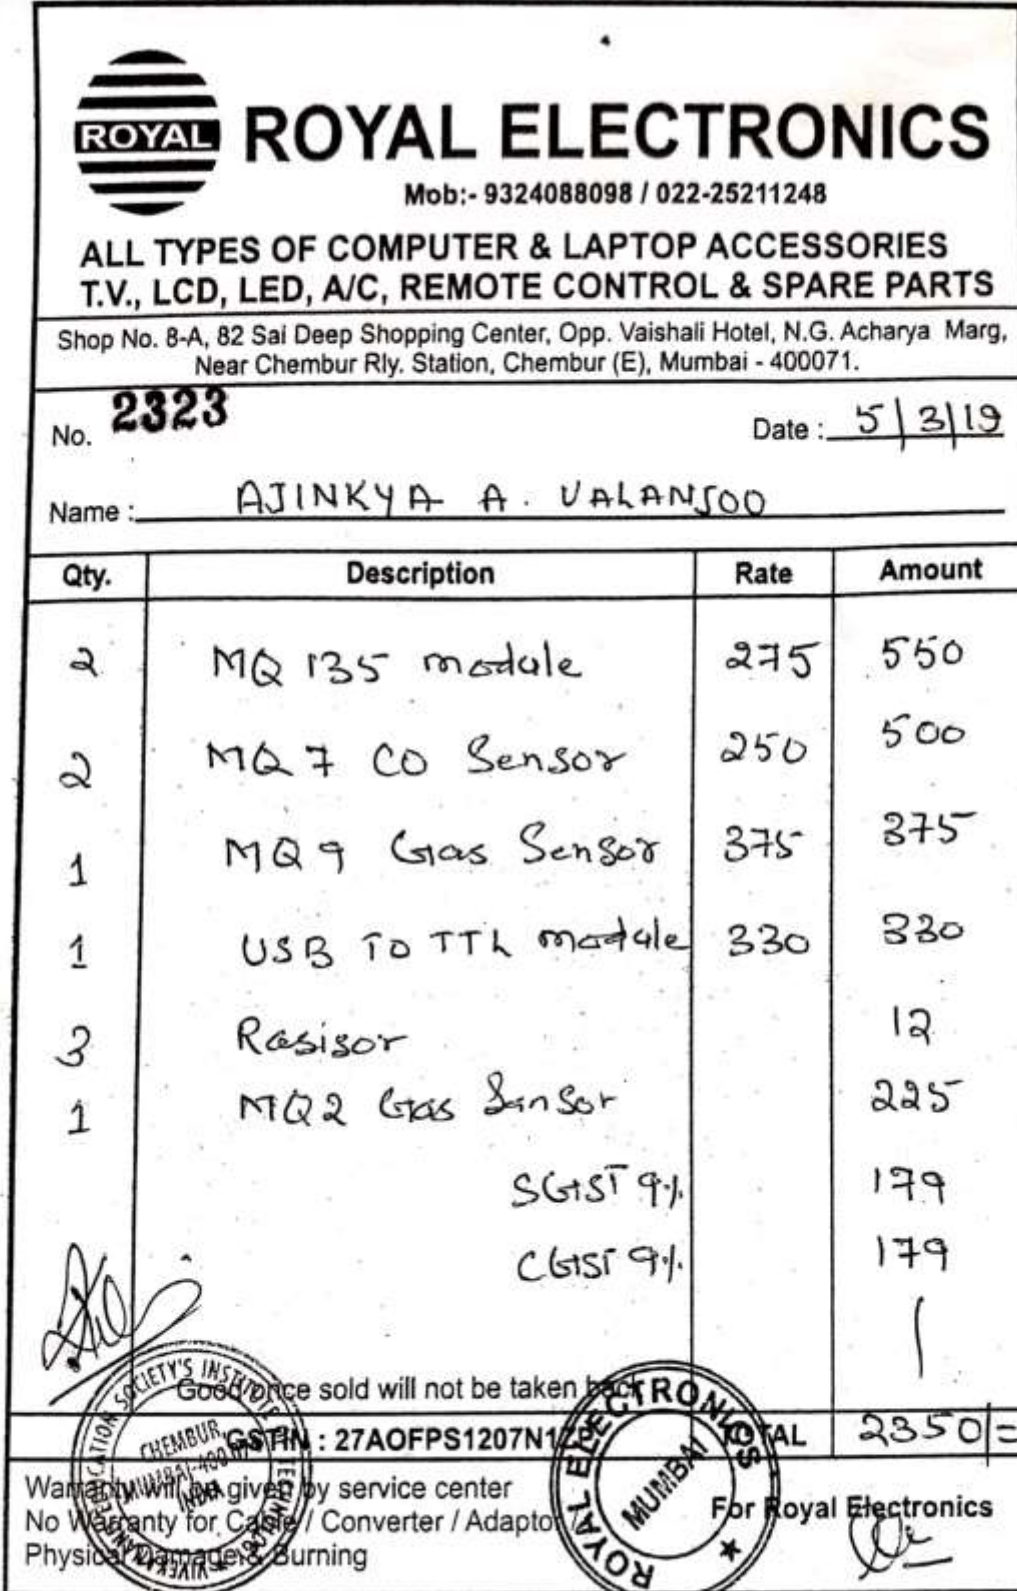 ROYAL
ROYAL ELECTRONICS
Mob:- 9324088098 / 022-25211248
ALL TYPES OF COMPUTER & LAPTOP ACCESSORIES
T.V., LCD, LED, A/C, REMOTE CONTROL & SPARE PARTS
Shop No. 8-A, 82 Sai Deep Shopping Center, Opp. Vaishali Hotel, N.G. Acharya Marg,
Near Chembur Rly. Station, Chembur (E), Mumbai - 400071.
No. 2323 Date : 5/3/19
Name : AJINKYA A. VALANJOO
Qty. Description Rate Amount
2 MQ 135 module 275 550
2 MQ 7 CO Sensor 250 500
1 MQ9 Gas Sensor 375 375
1 USB TO TTL module 330 330
3 Rasisor 12
1 MQ2 Gas Sansor 225
SGST 9% 179
CGST 9% 179
Good once sold will not be taken back
GSTIN : 27AOFPS1207N1ZP TOTAL 2350/=
Warranty will be given by service center
No Warranty for Cable / Converter / Adaptor
Physical Damage & Burning
For Royal Electronics
EDUCATION SOCIETY'S INSTITUTE OF TECHNOLOGY
CHEMBUR,
MUMBAI-400
INDIA
ROYAL ELECTRONICS
MUMBAI